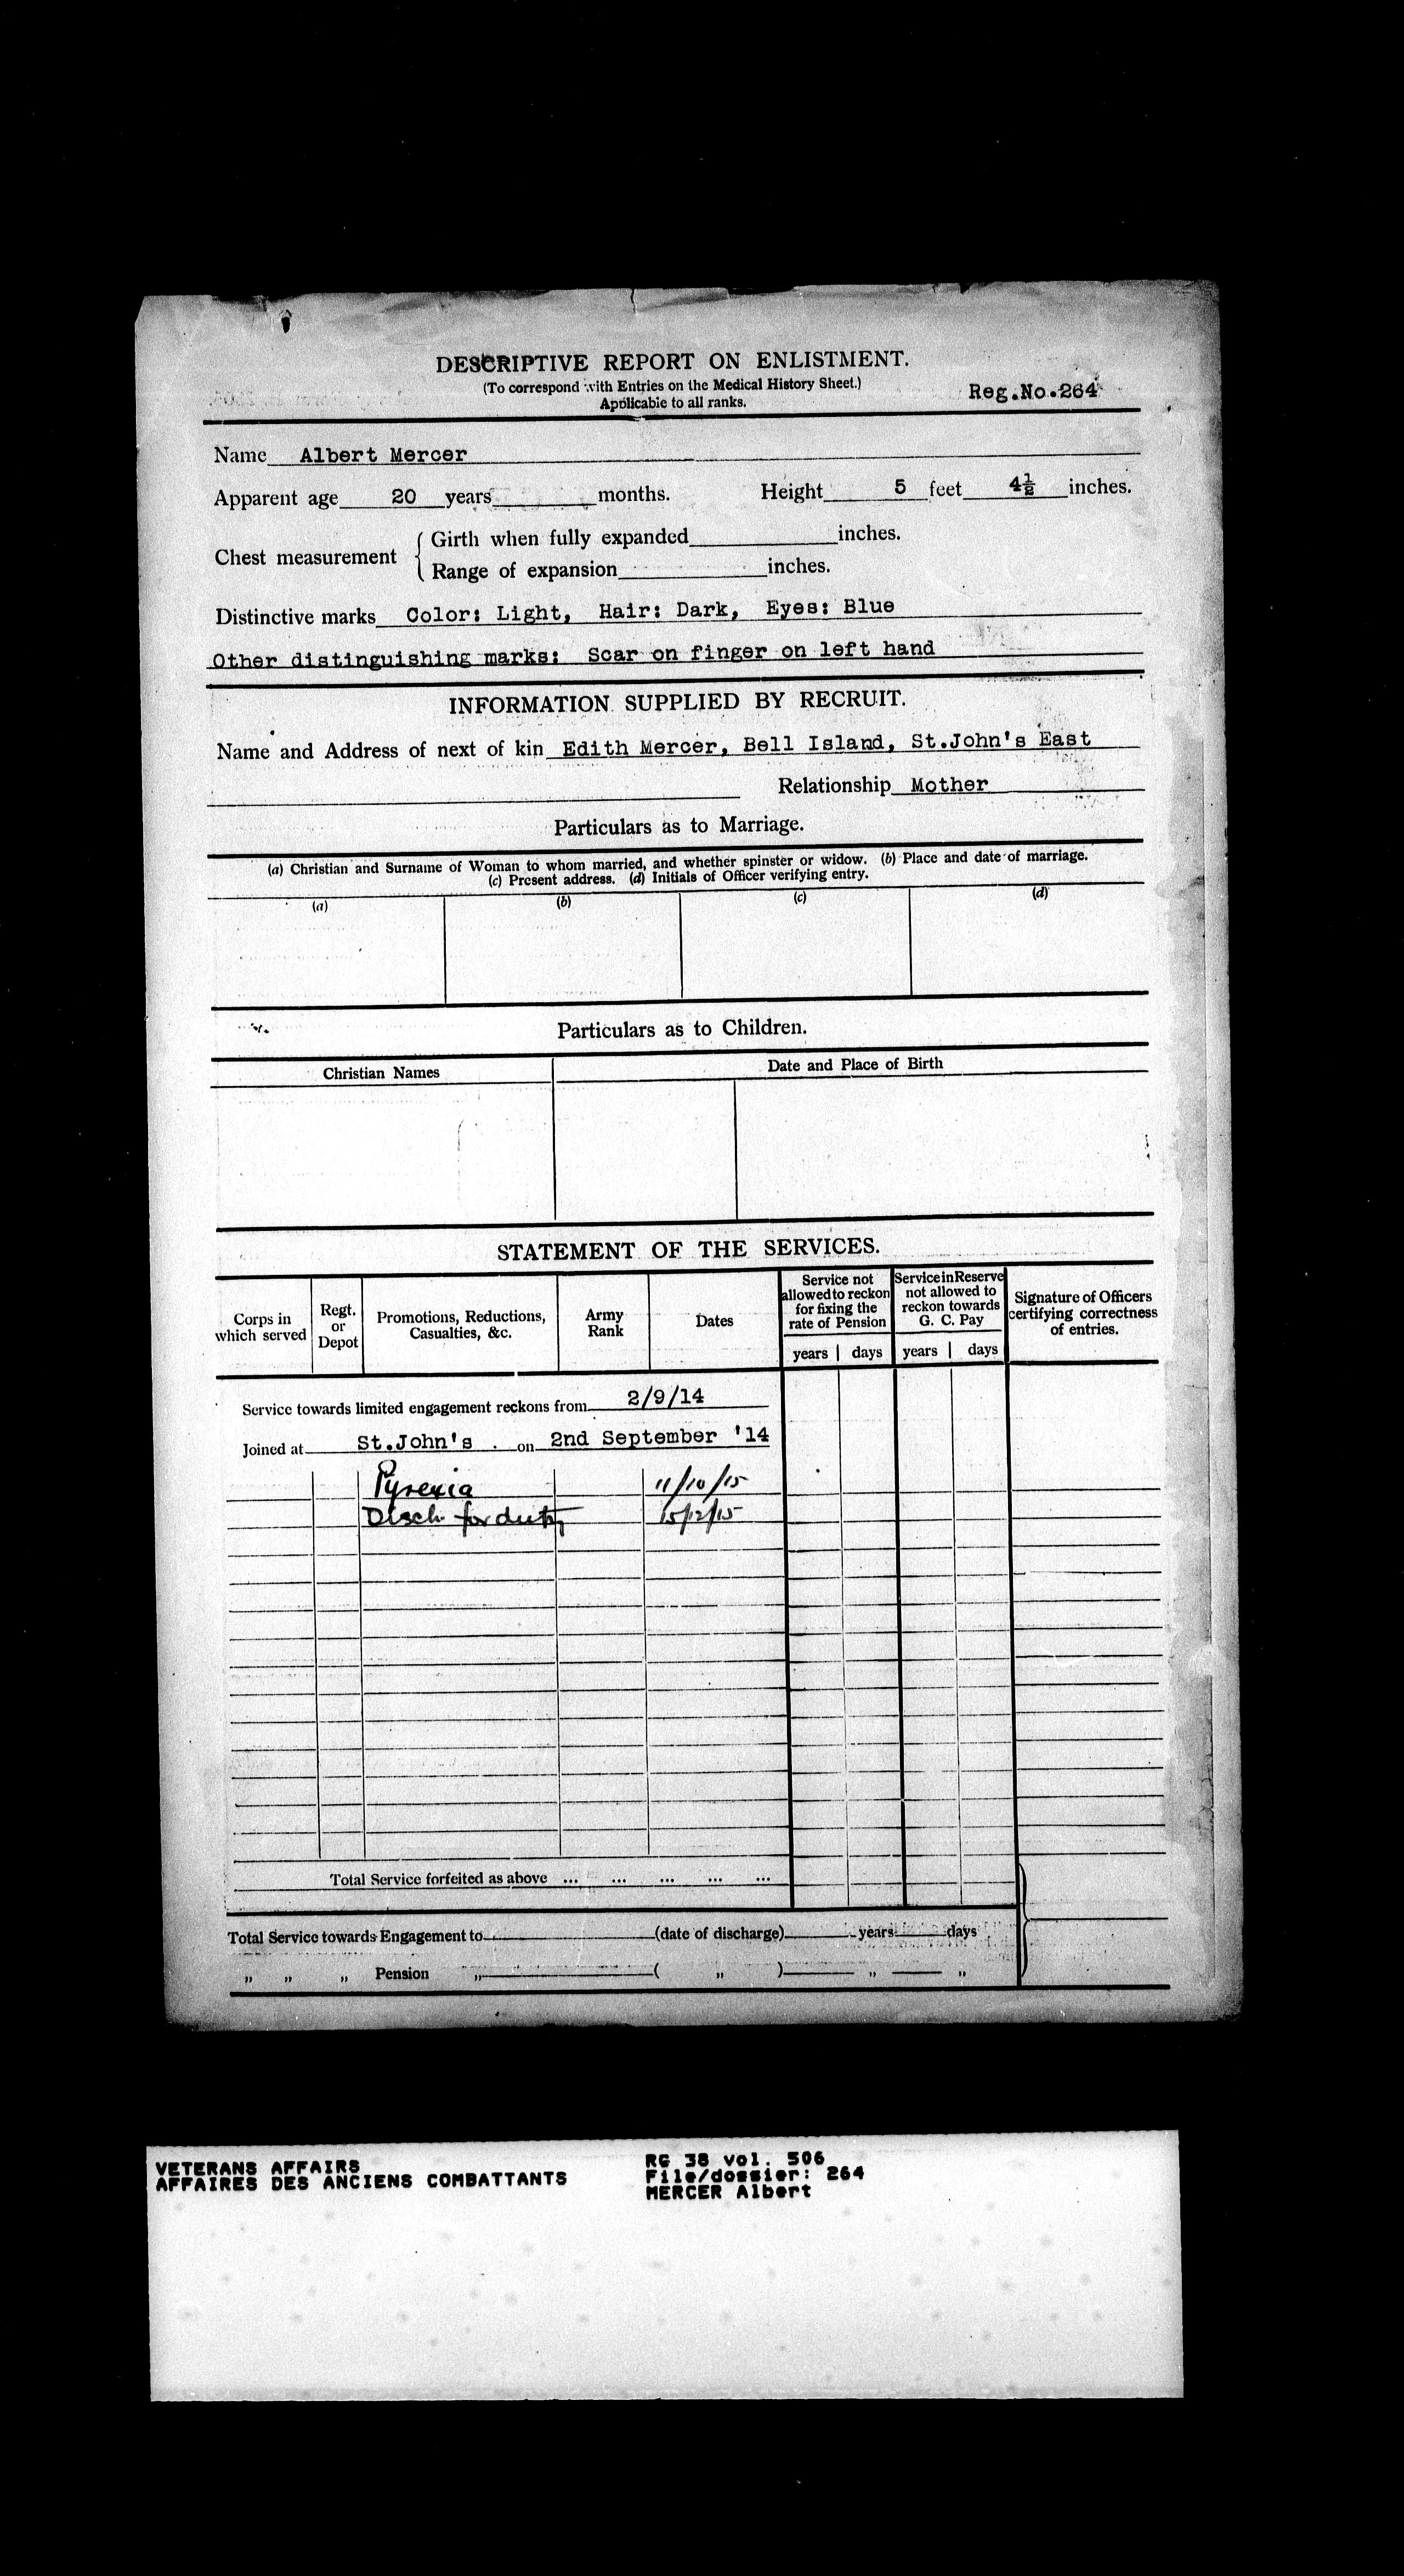 DESCRIPTIVE REPORT ON ENLISTMENT.
(To correspond with Entries on the Medical History Sheet.)
Applicable to all ranks.
Reg.No.264
Name Albert Mercer
Apparent age 20 years months. Height 5 feet 4½ inches.
Chest measurement { Girth when fully expanded inches.
Range of expansion inches.
Distinctive marks Color: Light, Hair: Dark, Eyes: Blue
Other distinguishing marks: Scar on finger on left hand
INFORMATION SUPPLIED BY RECRUIT.
Name and Address of next of kin Edith Mercer, Bell Island, St.John's East
Relationship Mother
Particulars as to Marriage.
(a) Christian and Surname of Woman to whom married, and whether spinster or widow. (b) Place and date of marriage.
(c) Present address. (d) Initials of Officer verifying entry.
(a) (b) (c) (d)
Particulars as to Children.
Christian Names Date and Place of Birth
STATEMENT OF THE SERVICES.
Corps in which served
Regt. or Depot
Promotions, Reductions, Casualties, &c.
Army Rank
Dates
Service not allowed to reckon for fixing the rate of Pension
years | days
Service in Reserve not allowed to reckon towards G. C. Pay
years | days
Signature of Officers certifying correctness of entries.
Service towards limited engagement reckons from 2/9/14
Joined at St.John's . on 2nd September '14
Pyrexia 11/10/15
Disch. for duty 15/12/15
Total Service forfeited as above ... ... ... ... ...
Total Service towards Engagement to (date of discharge) years days
„ „ „ Pension „ ( „ ) „ „
VETERANS AFFAIRS
AFFAIRES DES ANCIENS COMBATTANTS
RG 38 vol. 506
File/dossier: 264
MERCER Albert